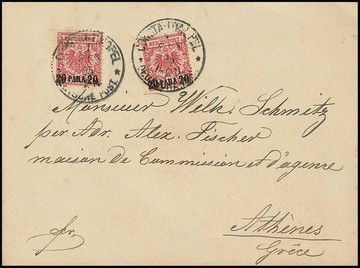 CONSTANTINOPEL
DEUTSCHE POST
20 PARA 20
CONSTANTINOPEL
20 PARA 20
Monsieur Wilh. Schmitz
per Adr. Alex. Fischer
maison de Commission et d'agence
Athènes
fr.
Grèce